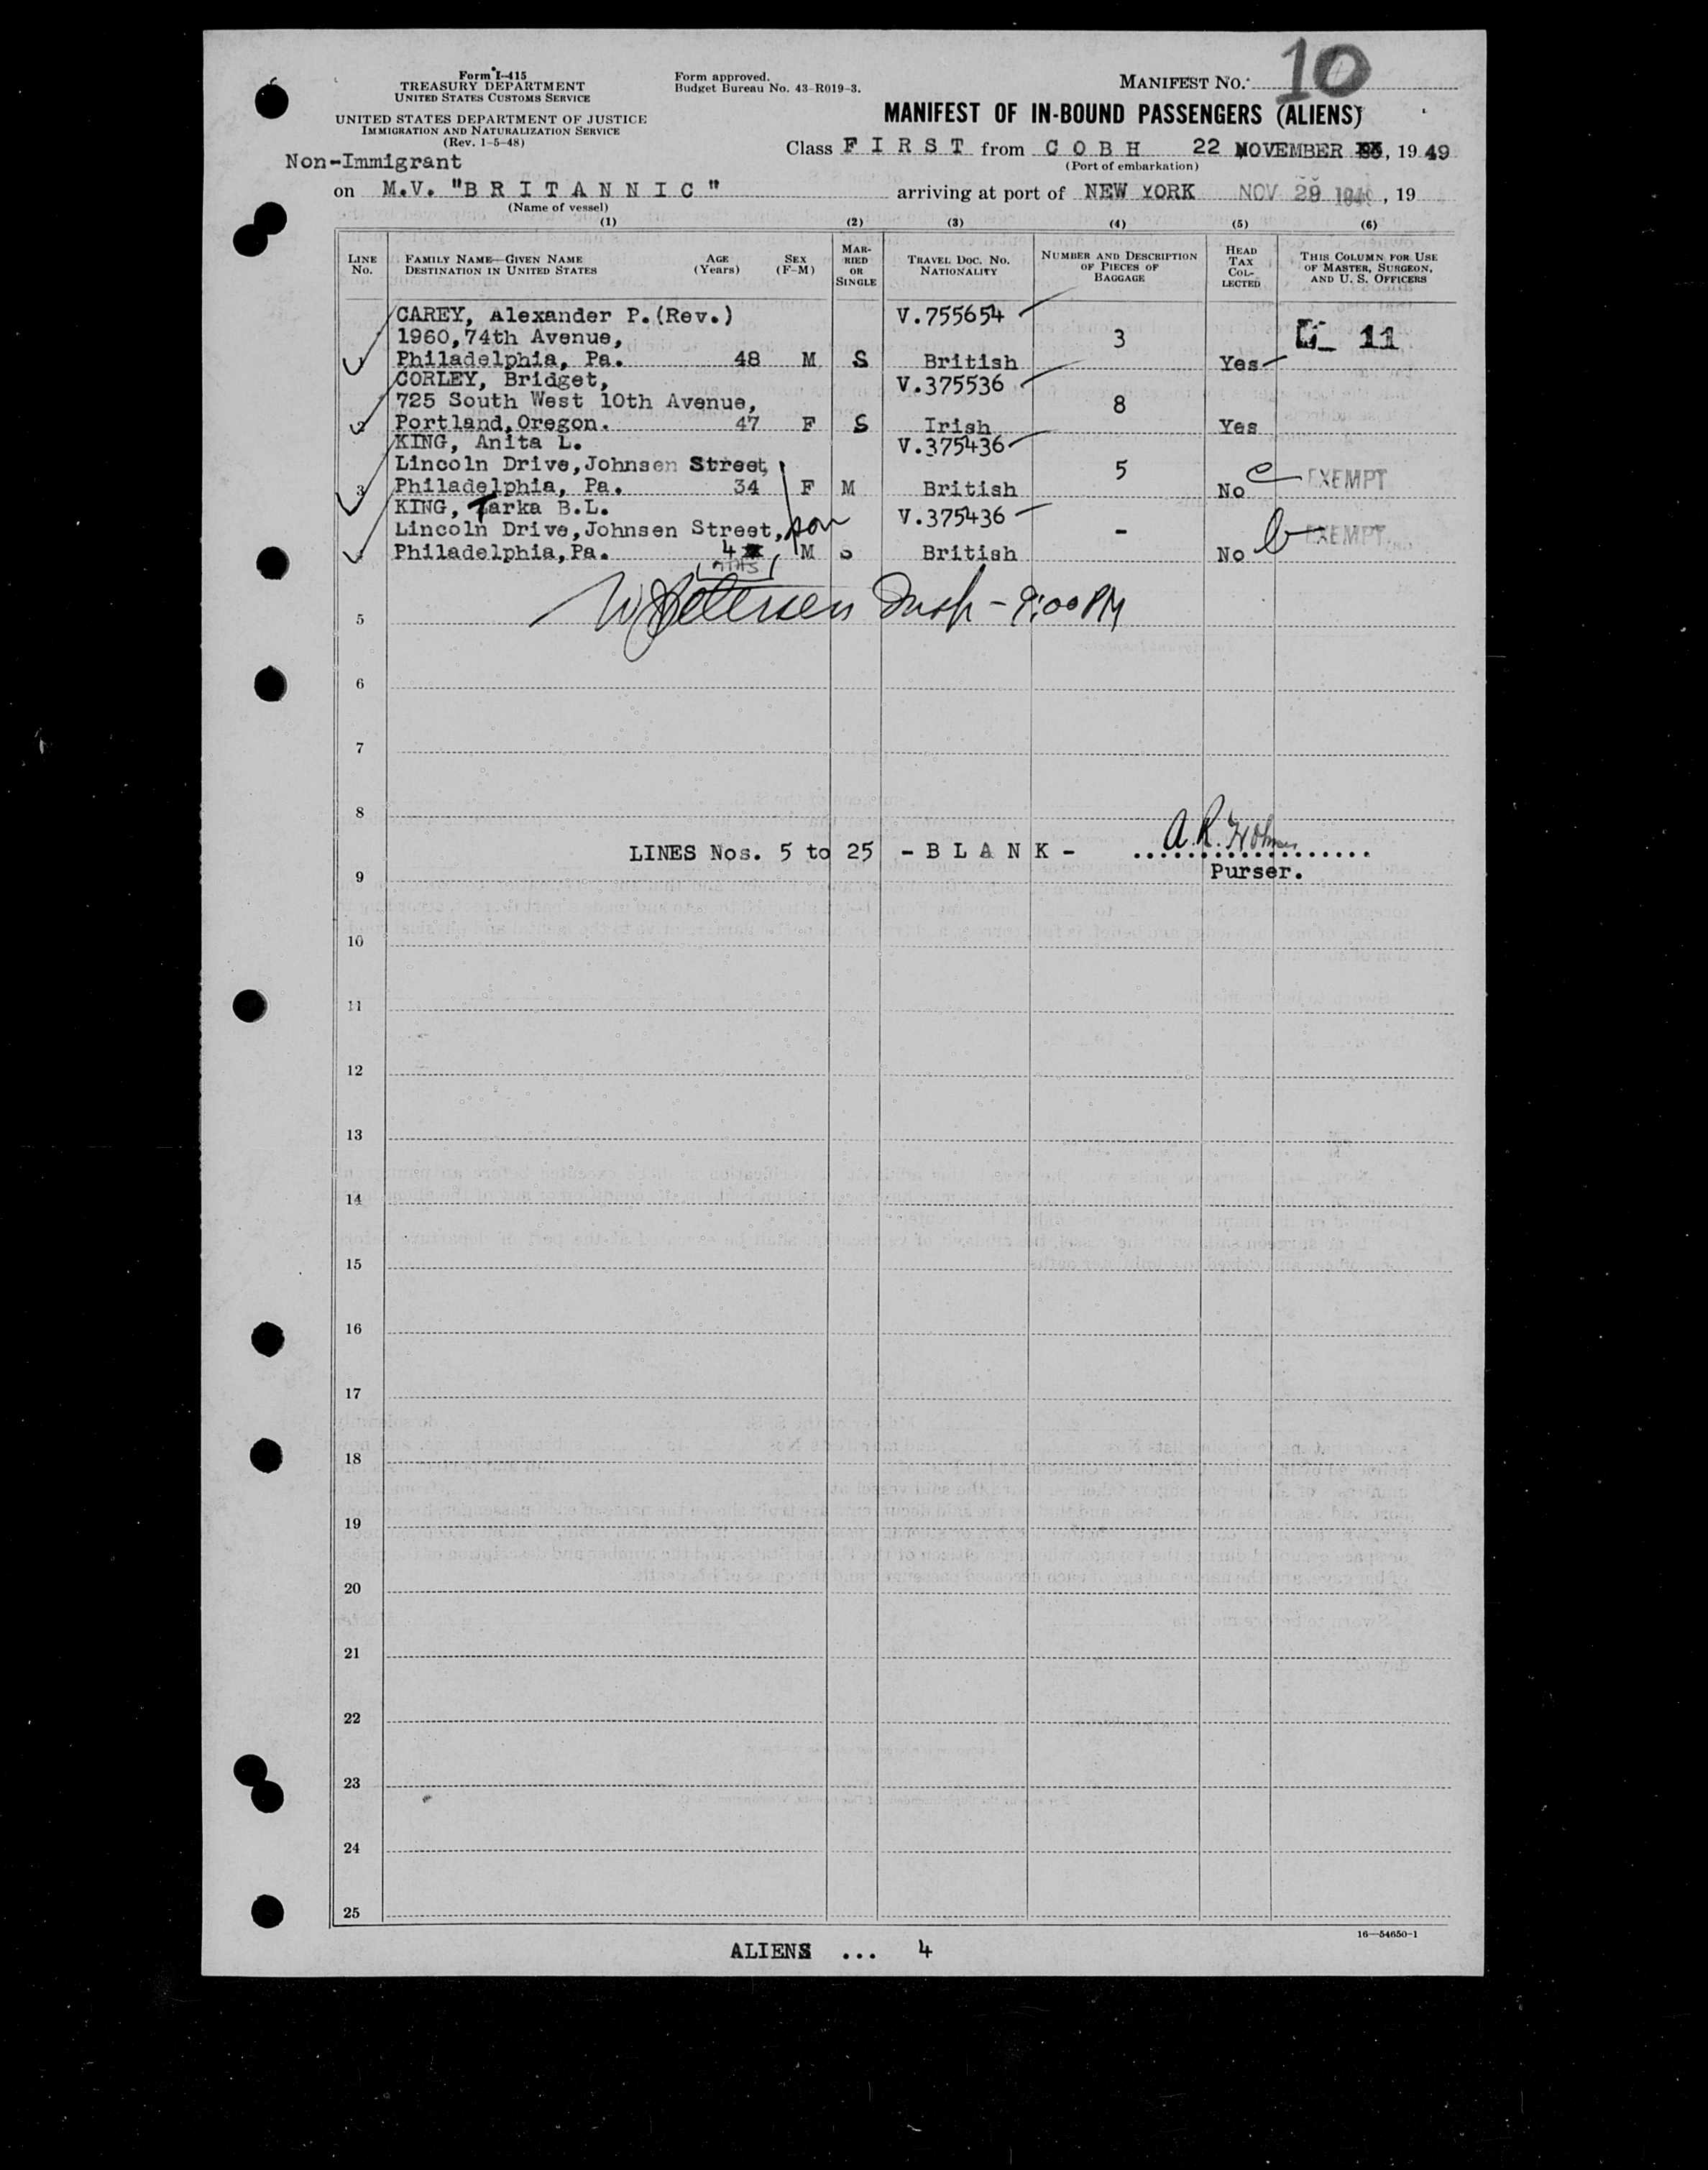 Form I-415
TREASURY DEPARTMENT
UNITED STATES CUSTOMS SERVICE
UNITED STATES DEPARTMENT OF JUSTICE
IMMIGRATION AND NATURALIZATION SERVICE
(Rev. 1-5-48)
Form approved.
Budget Bureau No. 43-R019-3.
MANIFEST NO. 10
MANIFEST OF IN-BOUND PASSENGERS (ALIENS)
Non-Immigrant
Class F I R S T from C O B H 22 NOVEMBER , 19 49
(Port of embarkation)
on M.V. "B R I T A N N I C" arriving at port of NEW YORK NOV 29 , 19
(Name of vessel)
(1) (2) (3) (4) (5) (6)
LINE No. FAMILY NAME—GIVEN NAME DESTINATION IN UNITED STATES AGE (Years) SEX (F-M) MARRIED OR SINGLE TRAVEL DOC. NO. NATIONALITY NUMBER AND DESCRIPTION OF PIECES OF BAGGAGE HEAD TAX COLLECTED THIS COLUMN FOR USE OF MASTER, SURGEON, AND U. S. OFFICERS
CAREY, Alexander P.(Rev.) V.755654
1960,74th Avenue, 3 11
1 Philadelphia, Pa. 48 M S British Yes
CORLEY, Bridget, V.375536
725 South West 10th Avenue, 8
2 Portland,Oregon. 47 F S Irish Yes
KING, Anita L. V.375436
Lincoln Drive,Johnsen Street, 5
3 Philadelphia, Pa. 34 F M British No EXEMPT
KING, Tarka B.L. V.375436
Lincoln Drive,Johnsen Street, son -
4 Philadelphia,Pa. 4 M S British No EXEMPT
mths
W Petersen Insp - 9:00 PM
5
6
7
8
A.R. Holmes
LINES Nos. 5 to 25 - B L A N K -
Purser.
9
10
11
12
13
14
15
16
17
18
19
20
21
22
23
24
25
16—54650-1
ALIENS ... 4